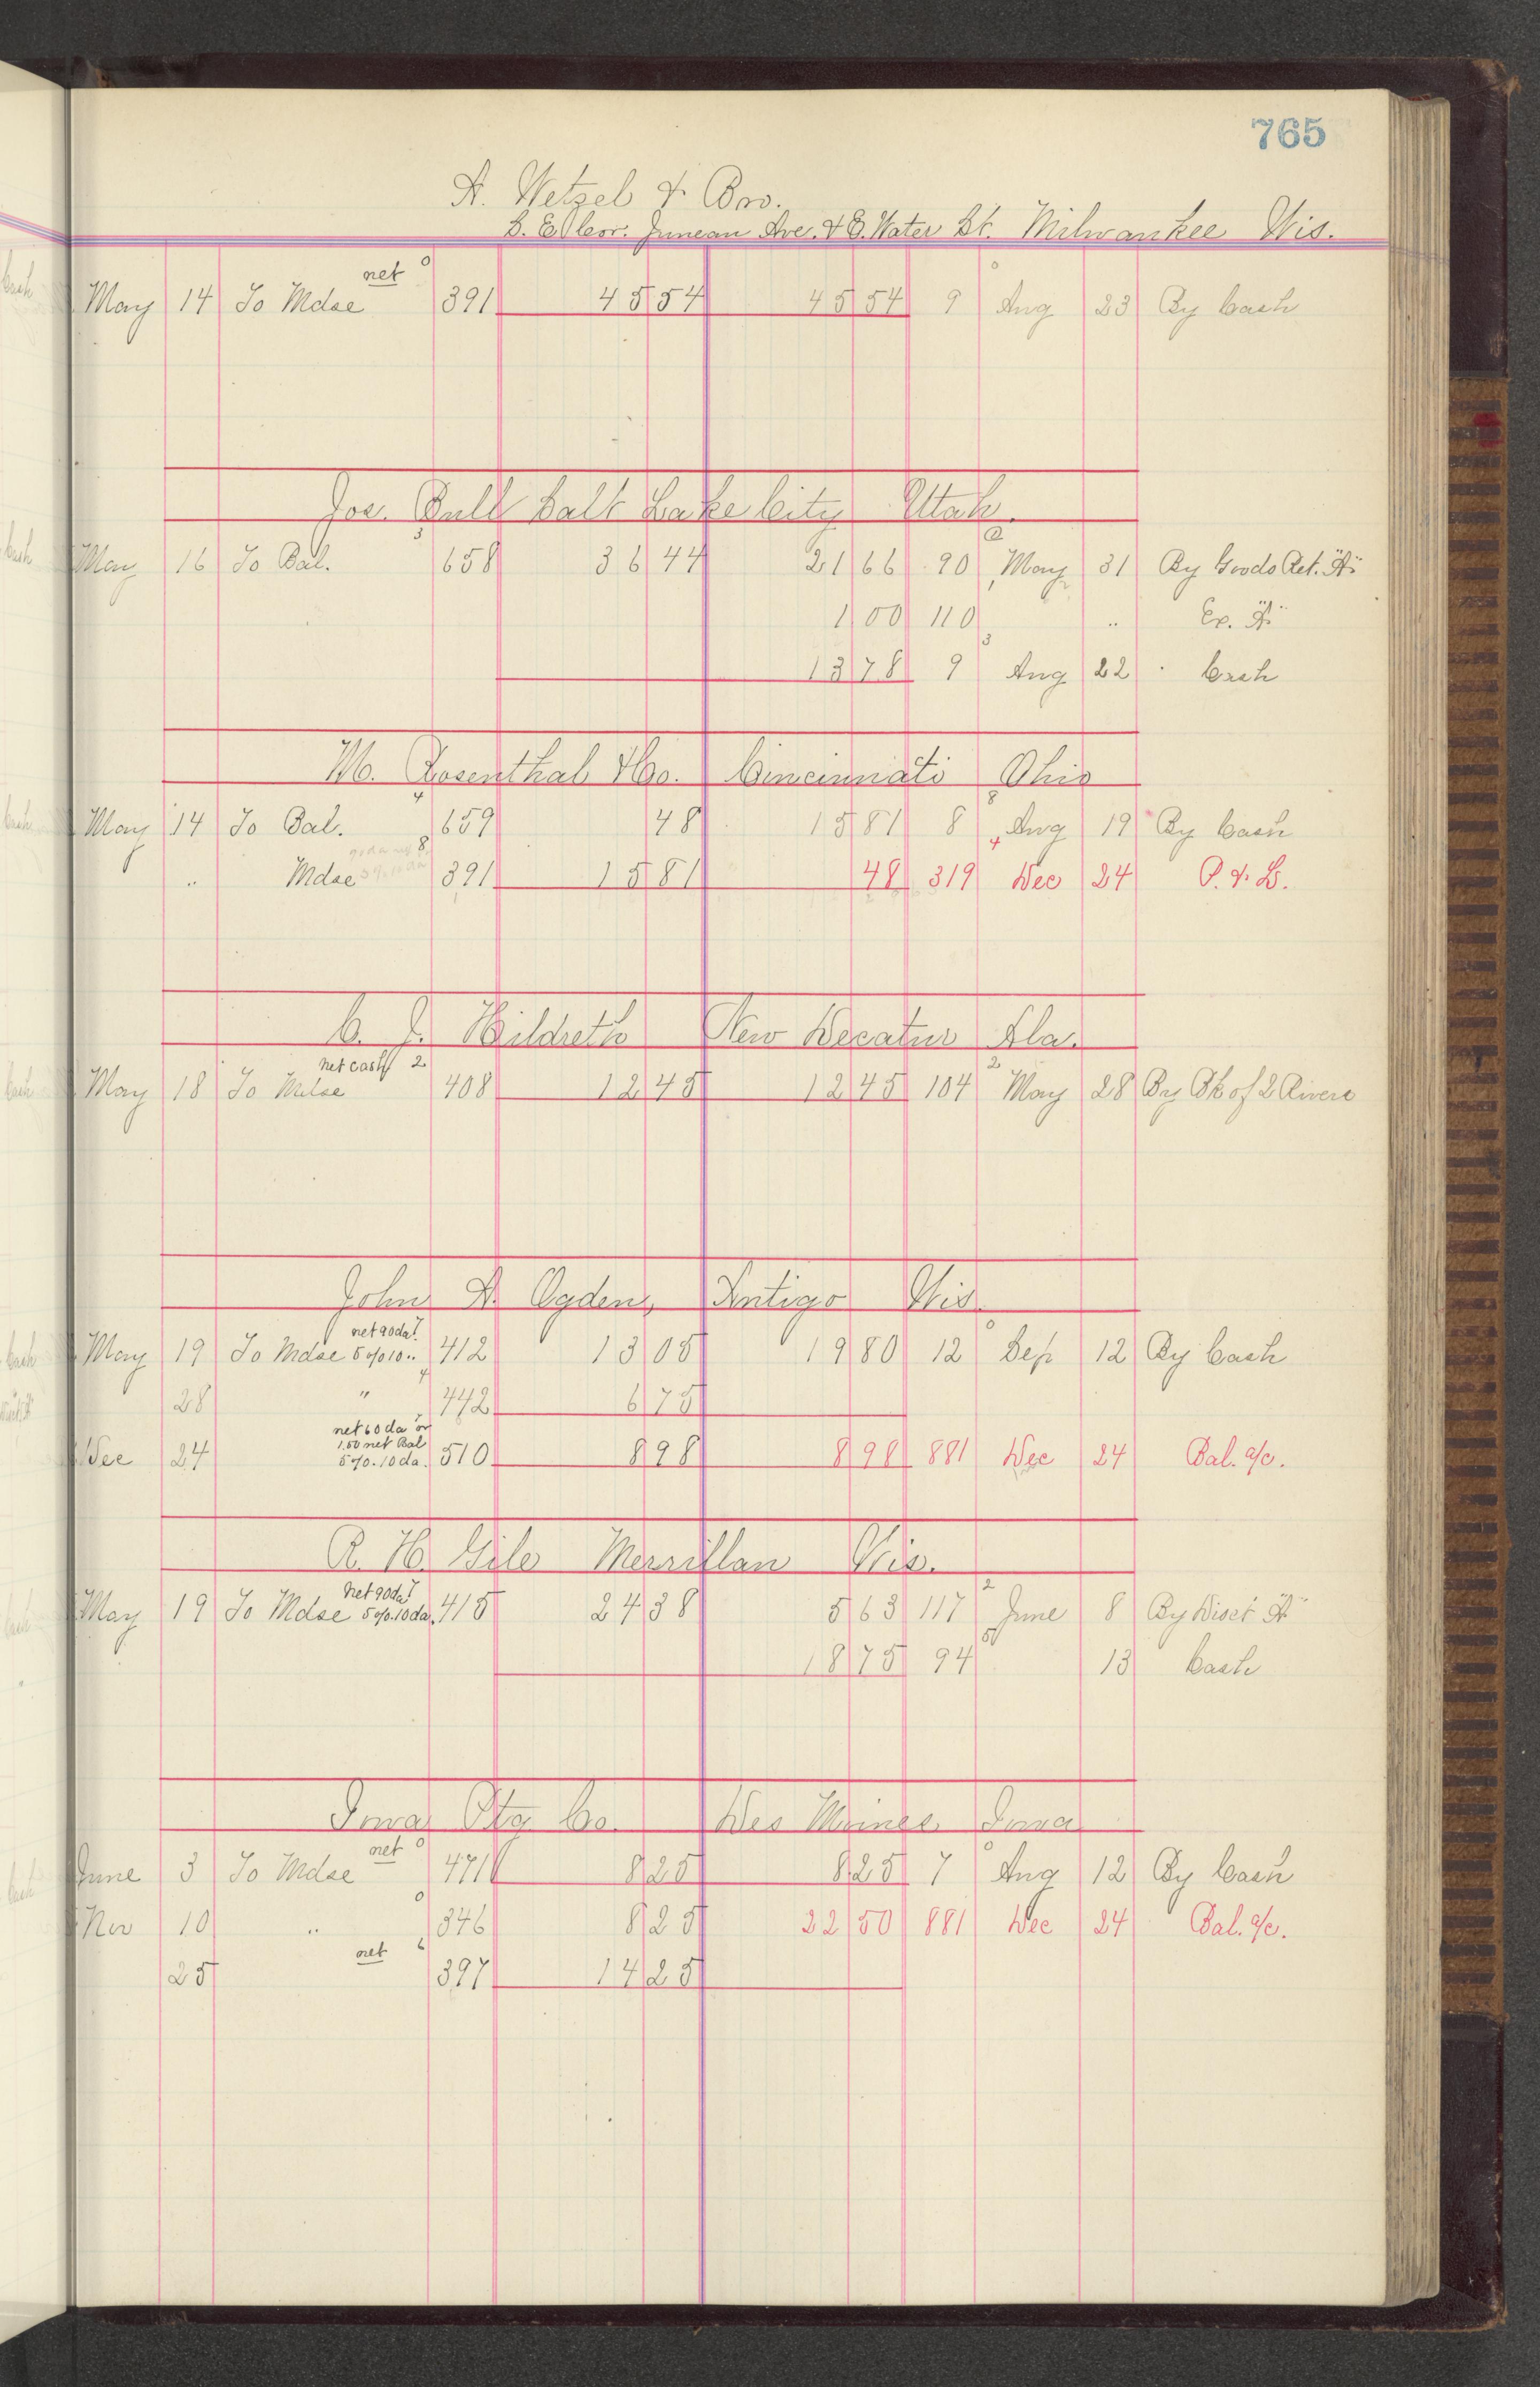 765
A. Wetzel & Bro.
S. E. Cor. Juneau Ave. & E. Water St. Milwaukee Wis.
net 0 0
May 14 To Mdse 391 45 54 45 54 9 Aug 23 By Cash
Jos. Bull Salt Lake City Utah.
3 2
May 16 To Bal. 658 36 44 21 66 90 May 31 By Goods Ret. "A"
1 00 110 " Ex. "A"
3
13 78 9 Aug 22 " Cash
M. Rosenthal & Co. Cincinnati Ohio
4 8
May 14 To Bal. 659 48 15 81 8 Aug 19 By Cash
8 4
" Mdse 391 15 81 48 319 Dec 24 P. & L.
C. J. Hildreth New Decatur Ala.
net cash 2 2
May 18 To Mdse 408 12 45 12 45 104 May 28 By Bk of 2 Rivers
John A. Ogden, Antigo Wis.
net 90 da 7 0
May 19 To Mdse 5% 10 " 412 13 05 19 80 12 Sep 12 By Cash
4
28 " 442 6 75
net 60 da or
1.50 net Bal
Dec 24 5%. 10 da. 510 8 98 8 98 881 Dec 24 Bal. a/c.
R. H. Gile Merrillan Wis.
Net 90 da 7 2
May 19 To Mdse 5%. 10 da. 415 24 38 5 63 117 June 8 By Disct "A"
5
18 75 94 13 Cash
Iowa Ptg Co. Des Moines Iowa
net 0 0
June 3 To Mdse 471 8 25 8 25 7 Aug 12 By Cash
0
Nov 10 " 346 8 25 22 50 881 Dec 24 Bal. a/c.
net 6
25 397 14 25